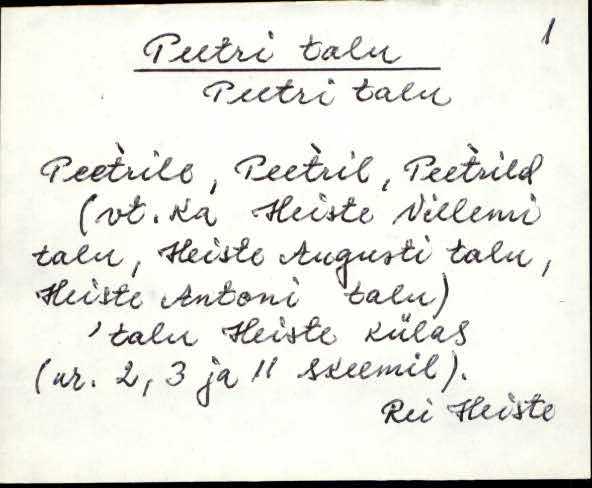 1
Peetri talu
Peetri talu
Peètrile, Peètril, Peètrild
(vt. ka Heiste Villemi
talu, Heiste Augusti talu,
Heiste Antoni talu)
'talu Heiste külas
(nr. 2, 3 ja 11 skeemil).
Rei Heiste